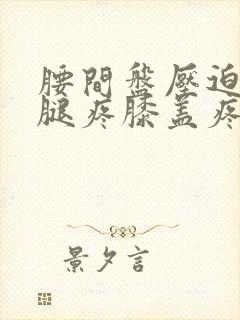 腰間盤壓迫
腿疼膝蓋疼
景夕言